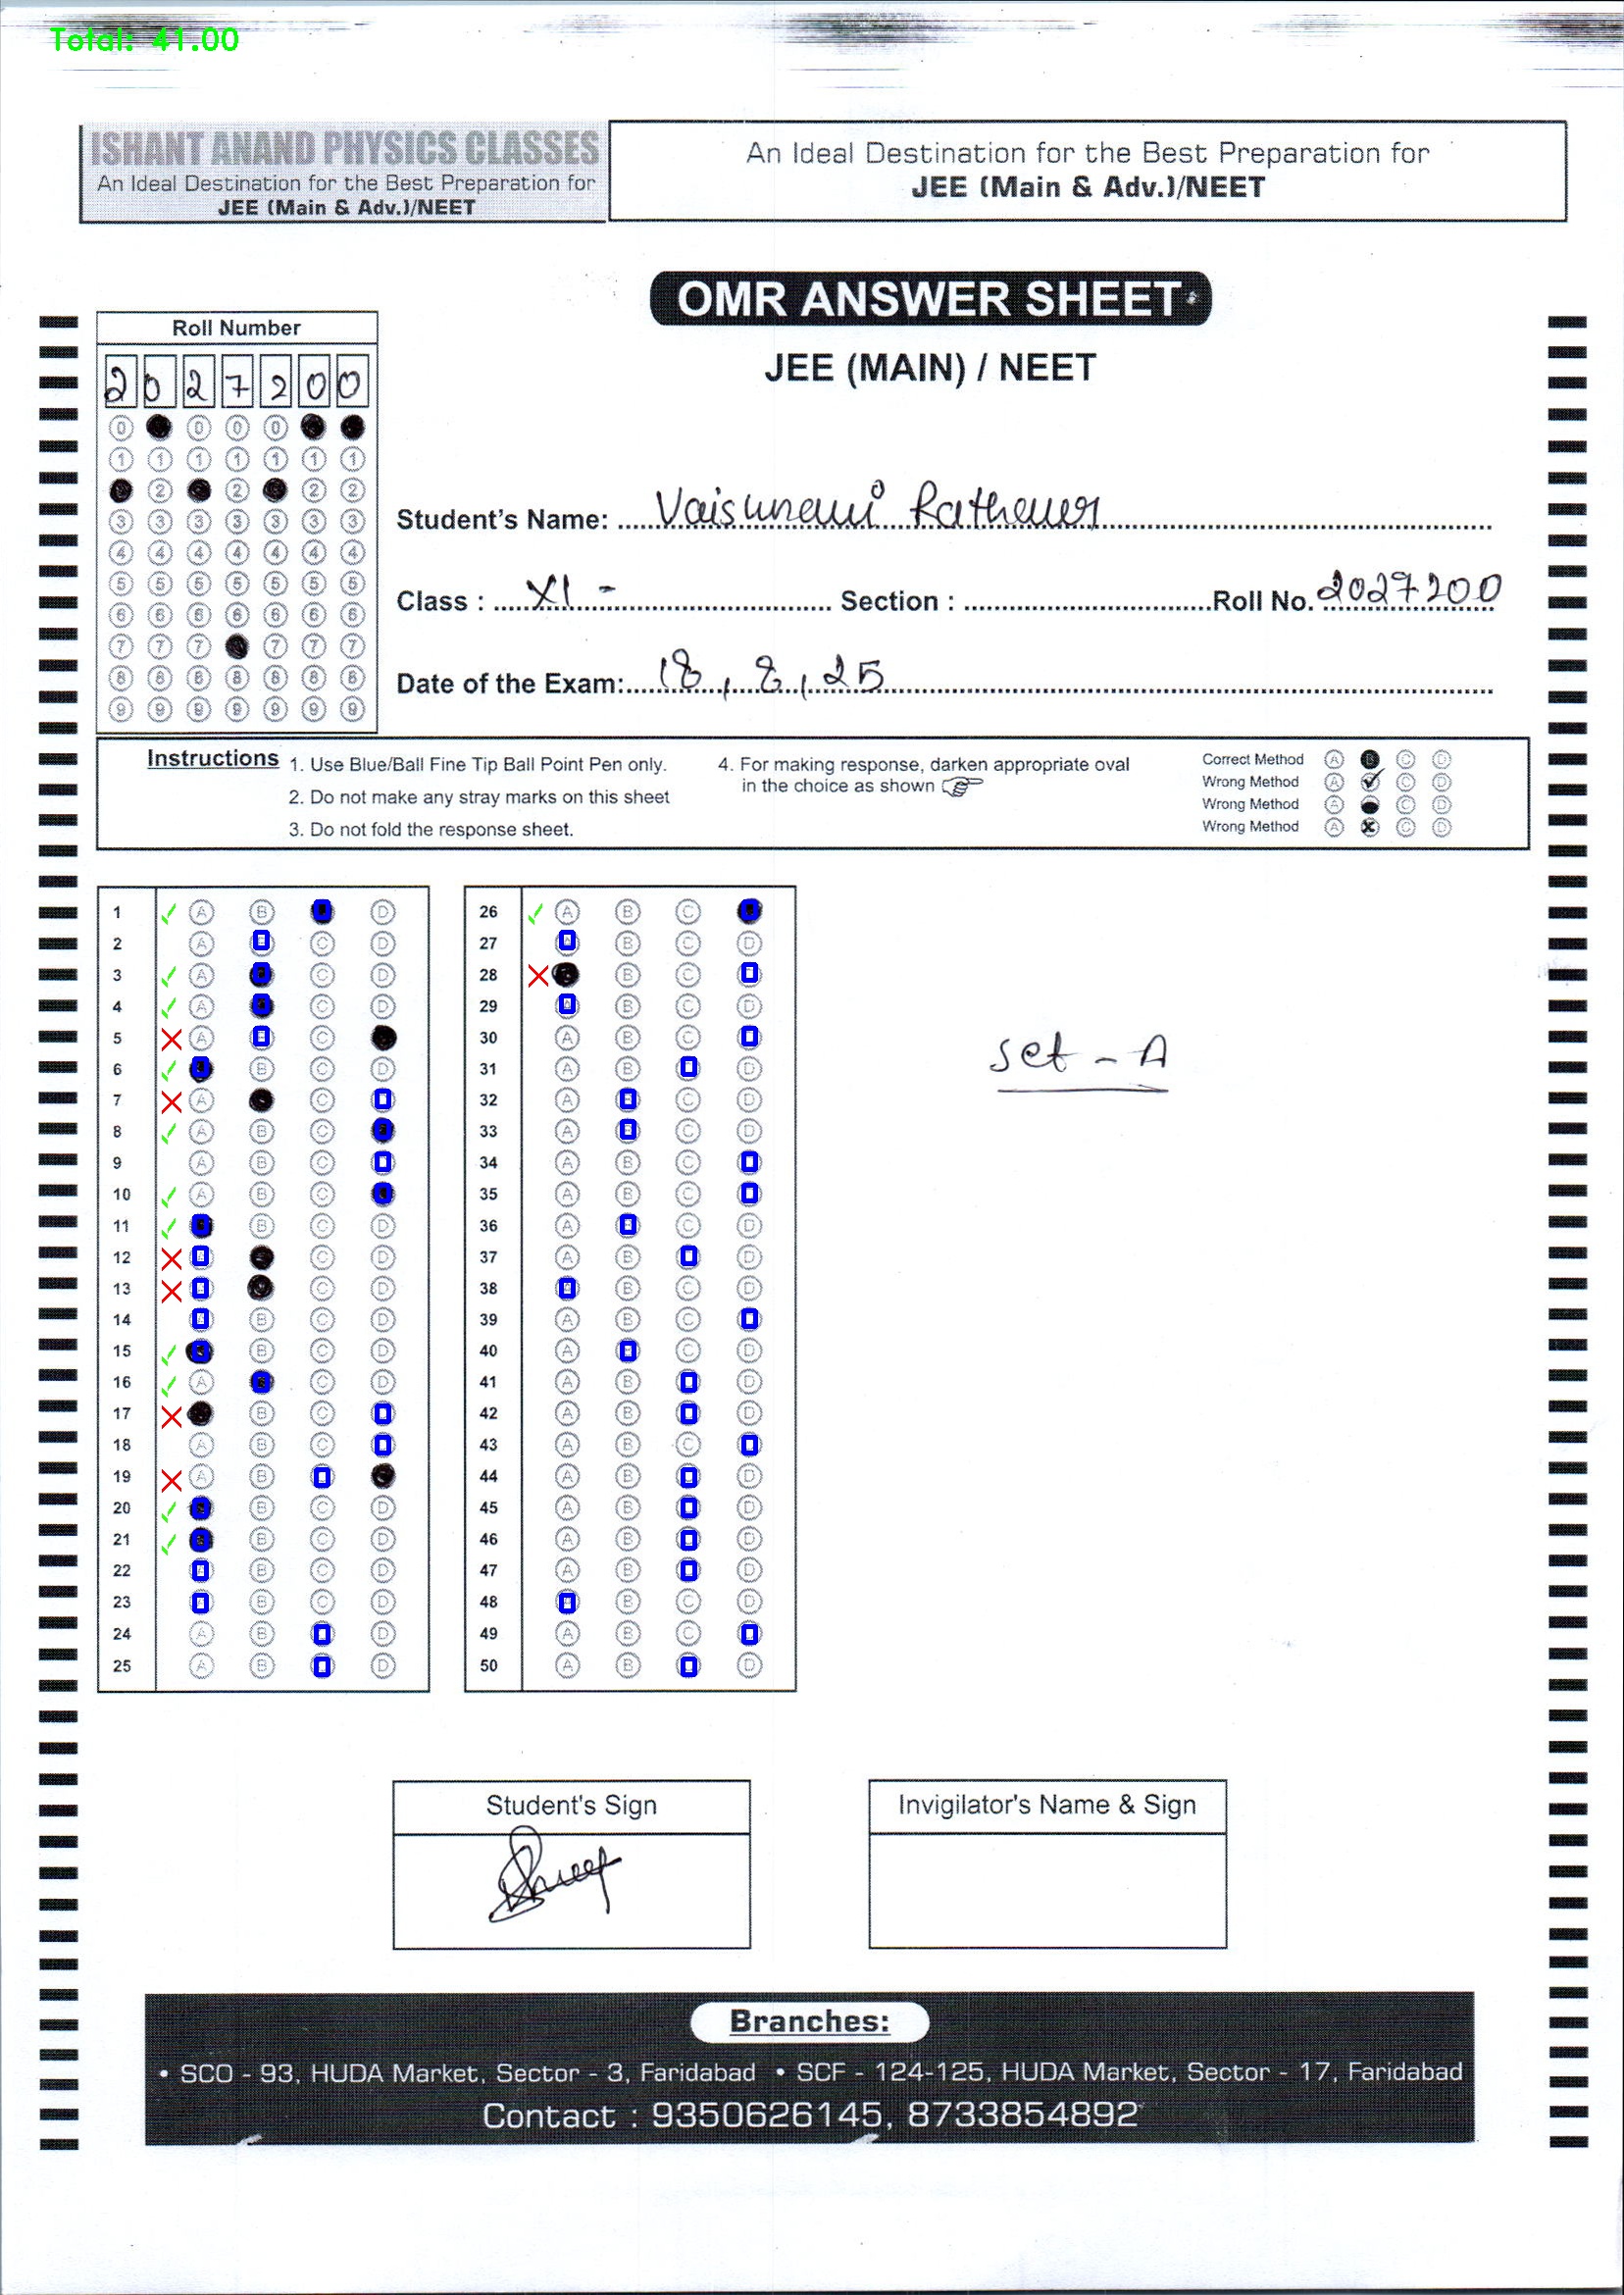 Total: 41.00
ISHANT ANAND PHYSICS CLASSES
An Ideal Destination for the Best Preparation for
JEE (Main & Adv.)/NEET
An Ideal Destination for the Best Preparation for
JEE (Main & Adv.)/NEET
OMR ANSWER SHEET
JEE (MAIN) / NEET
Roll Number
2 0 2 7 2 0 0
0 0 0 0
1 1 1 1 1 1 1
2 2 2 2
3 3 3 3 3 3 3
4 4 4 4 4 4 4
5 5 5 5 5 5 5
6 6 6 6 6 6 6
7 7 7 7 7 7
8 8 8 8 8 8 8
9 9 9 9 9 9 9
Student's Name:
Class : XI - Section : Roll No. 2027200
Date of the Exam: 18, 8, 25
Instructions 1. Use Blue/Ball Fine Tip Ball Point Pen only.
2. Do not make any stray marks on this sheet
3. Do not fold the response sheet.
4. For making response, darken appropriate oval
in the choice as shown
Correct Method A B C D
Wrong Method A C D
Wrong Method A C D
Wrong Method A C D
1 A B D
2 A C D
3 A C D
4 A C D
5 A C
6 B C D
7 A C
8 A B C
9 A B C
10 A B C
11 B C D
12 C D
13 C D
14 B C D
15 B C D
16 A C D
17 B C
18 A B C
19 A B
20 B C D
21 B C D
22 B C D
23 B C D
24 A B D
25 A B D
26 A B C
27 B C D
28 B C
29 B C D
30 A B C
31 A B D
32 A C D
33 A C D
34 A B C
35 A B C
36 A C D
37 A B D
38 B C D
39 A B C
40 A C D
41 A B D
42 A B D
43 A B C
44 A B D
45 A B D
46 A B D
47 A B D
48 B C D
49 A B C
50 A B D
Set - A
Student's Sign
Invigilator's Name & Sign
Branches:
• SCO - 93, HUDA Market, Sector - 3, Faridabad • SCF - 124-125, HUDA Market, Sector - 17, Faridabad
Contact : 9350626145, 8733854892